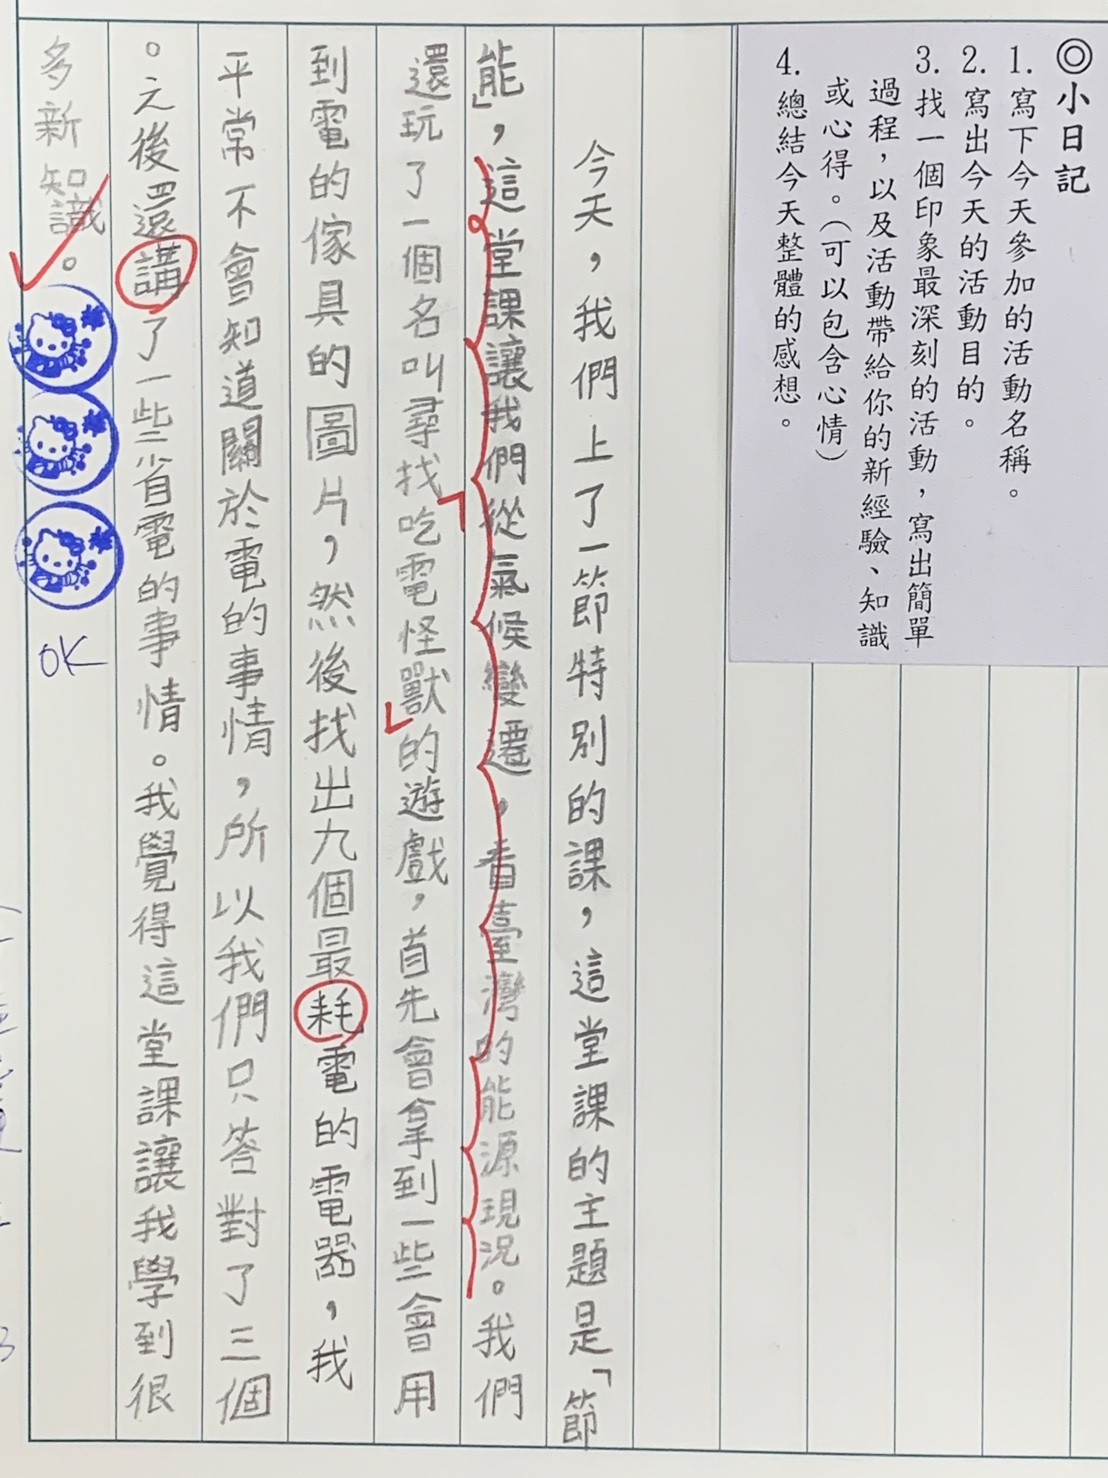 ◎小日記
1.寫下今天參加的活動名稱。
2.寫出今天的活動目的。
3.找一個印象最深刻的活動，寫出簡單
過程，以及活動帶給你的新經驗、知識
或心得。（可以包含心情）
4.總結今天整體的感想。
今天，我們上了一節特別的課，這堂課的主題是「節
能」，這堂課讓我們從氣候變遷，看臺灣的能源現況。我們
還玩了一個名叫尋找吃電怪獸的遊戲，首先會拿到一些會用
到電的傢具的圖片，然後找出九個最耗電的電器，我
平常不會知道關於電的事情，所以我們只答對了三個
。元後還講了一些省電的事情。我覺得這堂課讓我學到很
多新知識。
OK